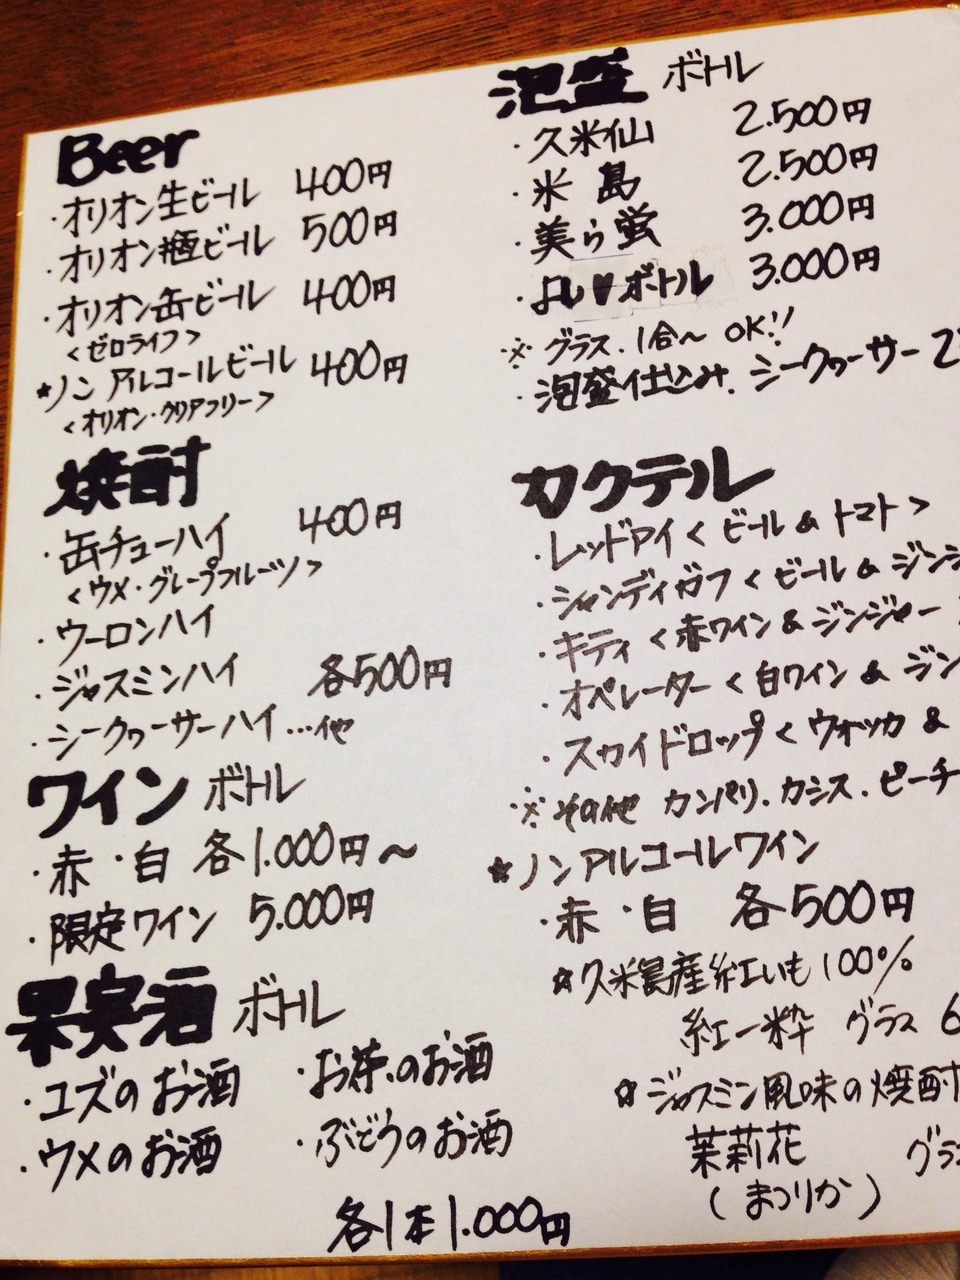 Beer
・オリオン生ビール 400円
・オリオン瓶ビール 500円
・オリオン缶ビール 400円
<ゼロライフ>
★ノンアルコールビール 400円
<オリオン・クリアフリー>
焼酎
・缶チューハイ 400円
<ウメ・グレープフルーツ>
・ウーロンハイ
・ジャスミンハイ 各500円
・シークヮーサーハイ…他
ワイン ボトル
・赤 ・白 各1.000円〜
・限定ワイン 5.000円
果実酒 ボトル
・ユズのお酒 ・お茶のお酒
・ウメのお酒 ・ぶどうのお酒
各1本1.000円
泡盛 ボトル
・久米仙 2.500円
・米島 2.500円
・美ら蛍 3.000円
・よし♥ボトル 3.000円
※グラス.1合〜 OK!!
・泡盛仕込み.シークヮーサー 2
カクテル
・レッドアイ<ビール&トマト>
・シャンディガフ<ビール&ジンジ
・キティ<赤ワイン&ジンジャー
・オペレーター<白ワイン&ジン
・スカイドロップ<ウォッカ&
※その他 カンパリ.カシス.ピーチ
★ノンアルコールワイン
・赤 ・白 各500円
☆久米島産紅いも100%
紅一粋 グラス 6
☆ジャスミン風味の焼酎
茉莉花 グラ
(まつりか)